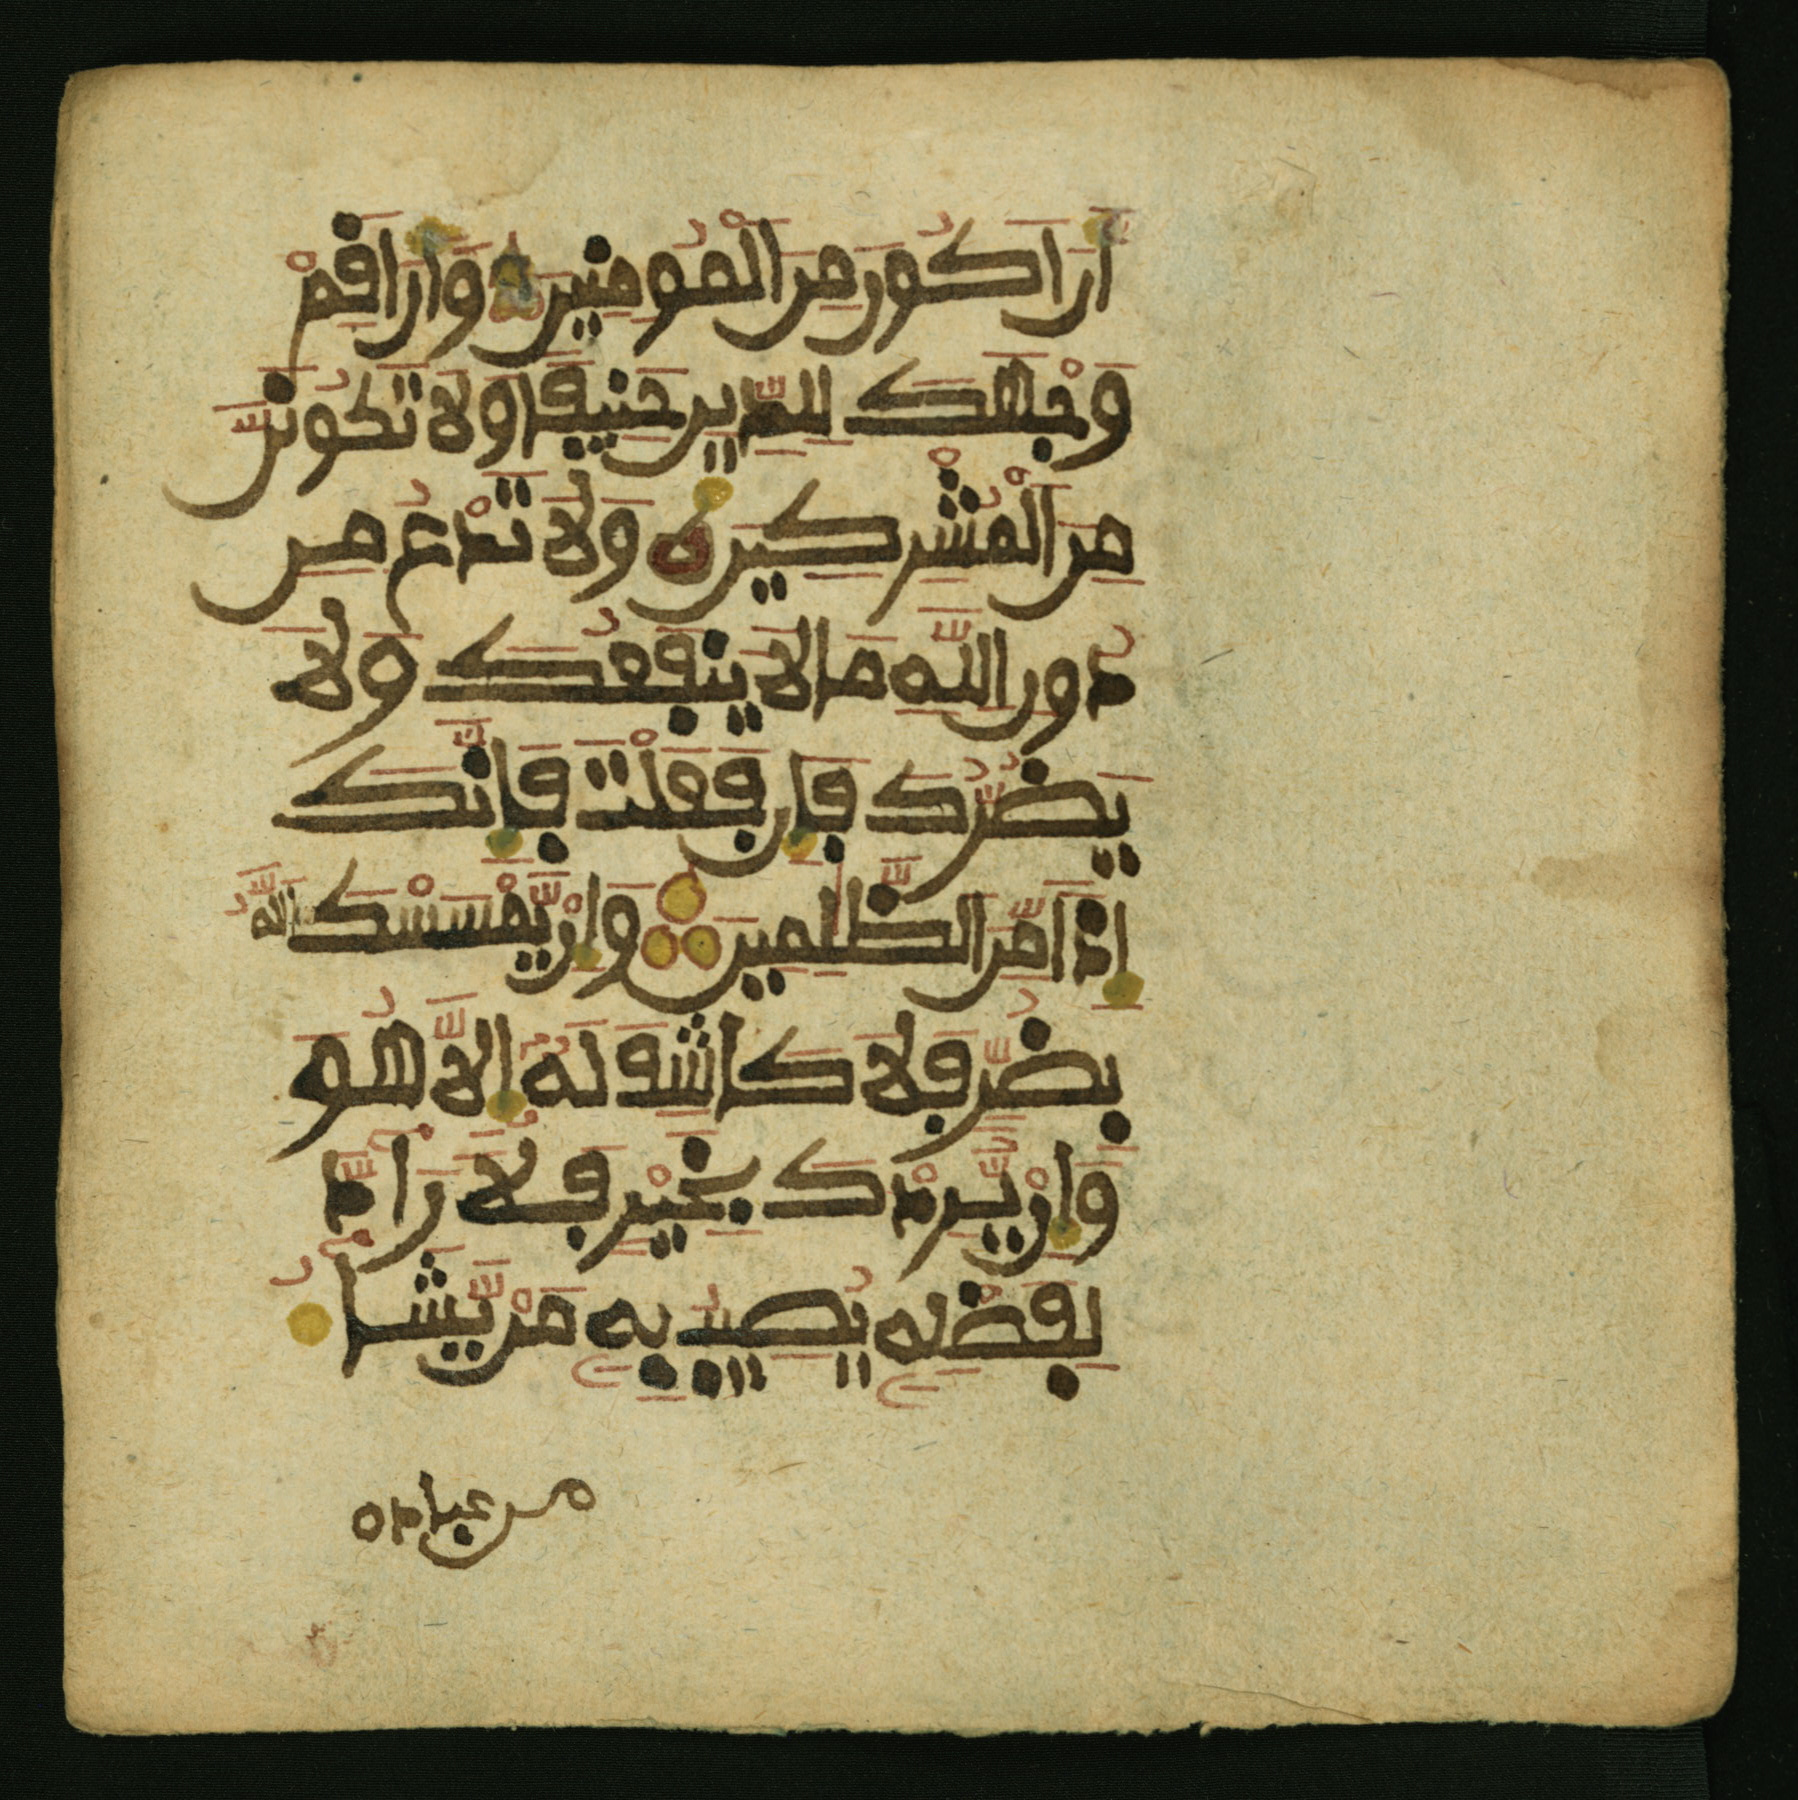 أَنَ اَكُونَ مِنَ الْمُومِنِينَ وَأَنَ اَقِمْ
وَجْهَكَ لِلدِّينِ حَنِيفًا وَلَا تَكُونَنَّ
مِنَ الْمُشْرِكِينَ وَلَا تَدْعُ مِن
دُونِ اللَّهِ مَا لَا يَنفَعُكَ وَلَا
يَضُرُّكَ فَإِن فَعَلْتَ فَإِنَّكَ
إِذًا مِّنَ الظَّـٰلِمِينَ وَإِنْ يَّمْسَسْكَ اللَّهُ
بِضُرٍّ فَلَا كَاشِفَ لَهُ إِلَّا هُوَ
وَإِنْ يُّرِدْكَ بِخَيْرٍ فَلَا رَادَّ
لِفَضْلِهِ يُصِيبُ بِهِ مَنْ يَّشَاءُ
من عباده